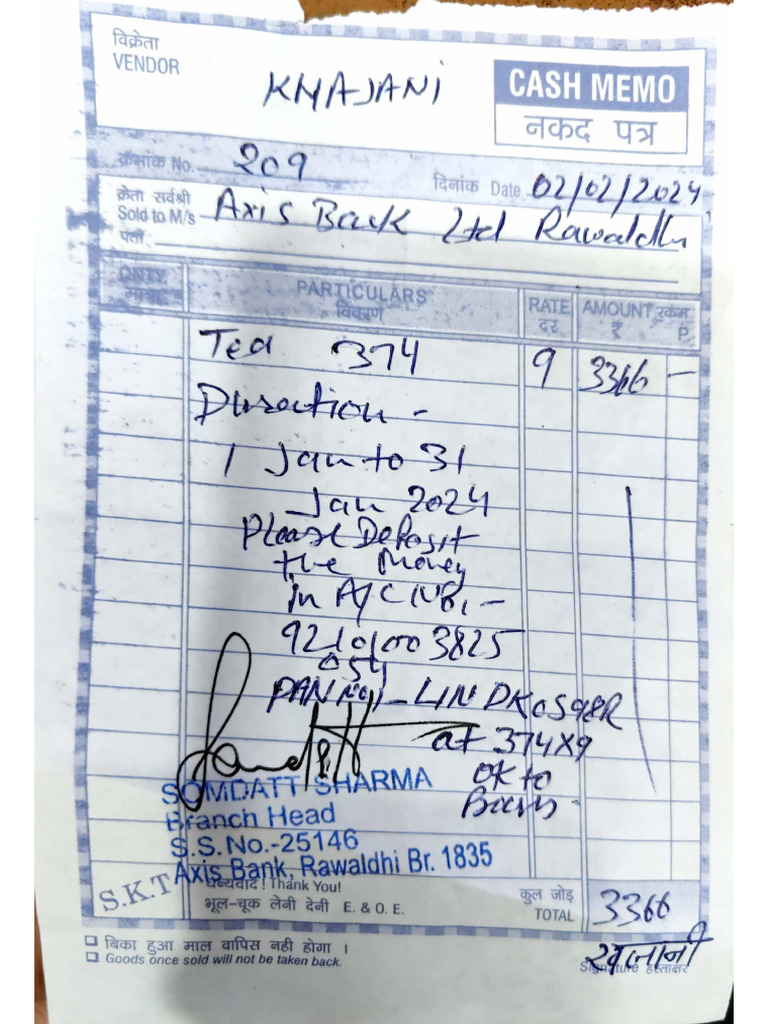 विक्रेता
VENDOR
KHAJANI
CASH MEMO
नकद पत्र
क्रमांक No. 209
दिनांक Date 02/02/2024
क्रेता सर्वश्री
Sold to M/s Axis Bank Ltd Rawaldhi
पता
QNTY. PARTICULARS RATE AMOUNT रकम
माल विवरण दर ₹ P.
Tea 374 9 3366 —
Duraction -
1 Jan to 31
Jan 2024
Please Deposit
the Money
in A/C NB, -
92101003825
054
PAN No, - LINDK0598R
at 374x9
ok to
SOMDATT SHARMA
Branch Head
S.S.No.-25146
Axis Bank, Rawaldhi Br. 1835
S.K.T
धन्यवाद ! Thank You!
भूल-चूक लेनी देनी E. & O. E.
कुल जोड़
TOTAL 3366
बिका हुआ माल वापिस नही होगा ।
Goods once sold will not be taken back.
खजानी
Signature हस्ताक्षर